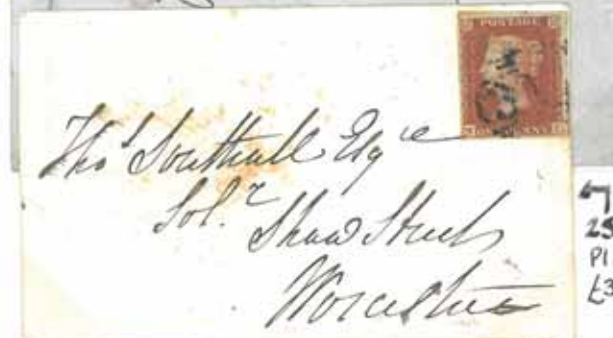 POSTAGE
ONE PENNY
Thos Southall Esqre
Solr
Shaw Street
Worcester
25
Pl
£3